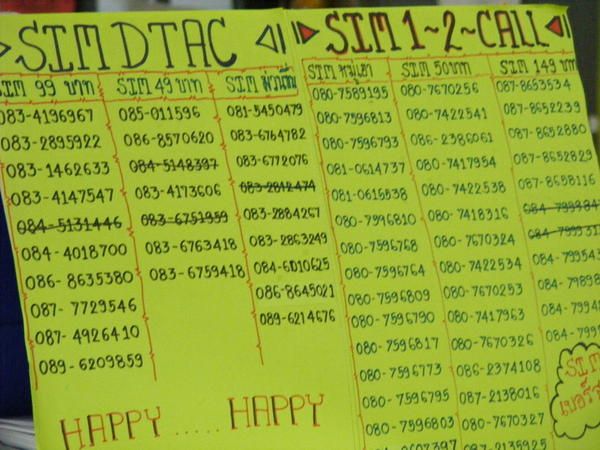 SIM DTAC
SIM 99 บาท
083-4196967
083-2895922
083-1462633
083-4147547
084-5131446
084-4018700
086-8635380
087-7729546
087-4926410
089-6209859
SIM 49 บาท
085-011596
086-8570620
084-5148397
083-4173606
083-6751959
083-6763418
083-6759418
SIM
081-5450479
083-6764782
083-6772076
083-2812474
083-2884267
083-2863249
084-6010625
086-8645021
089-6214676
HAPPY ..... HAPPY
SIM 1~2~CALL
SIM
080-7589195
080-7596813
080-7596793
081-0614737
081-0615538
080-7596810
080-7596768
080-7596764
080-7596809
080-7596790
080-7596817
080-7596773
080-7596795
080-7596803
SIM 50 บาท
080-7670256
080-7422541
086-2386061
080-7417954
080-7422538
080-7418316
080-7670324
080-7422534
080-7670253
080-7417963
080-7670326
086-2374108
087-2138016
080-7670327
087-2135925
SIM 149 บาท
087-8653534
087-8652239
087-8652880
087-8652829
087-8658116
SIM